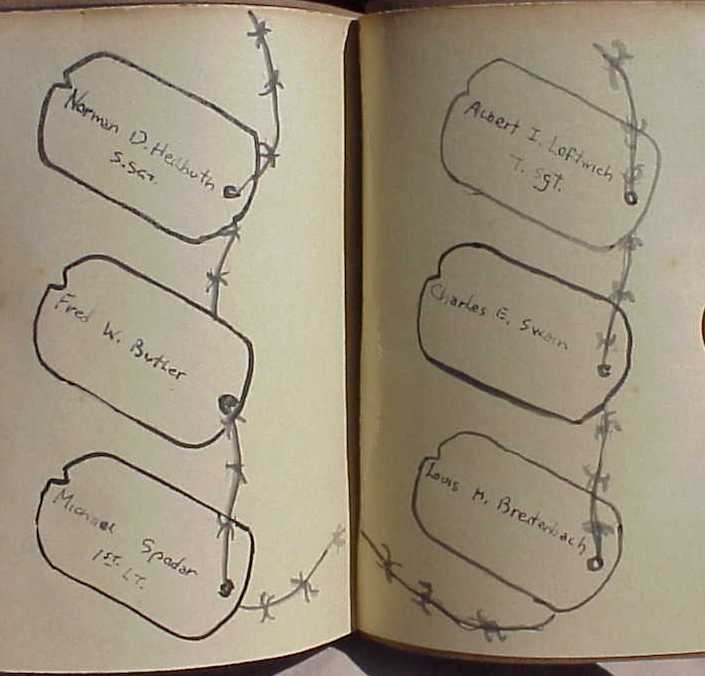 Norman D. Heilbuth
S.SGT.
Fred W. Butler
Michael Spodar
1ST. LT.
Albert I. Loftwich
T. Sgt.
Charles E. Swain
Louis H. Breitenbach